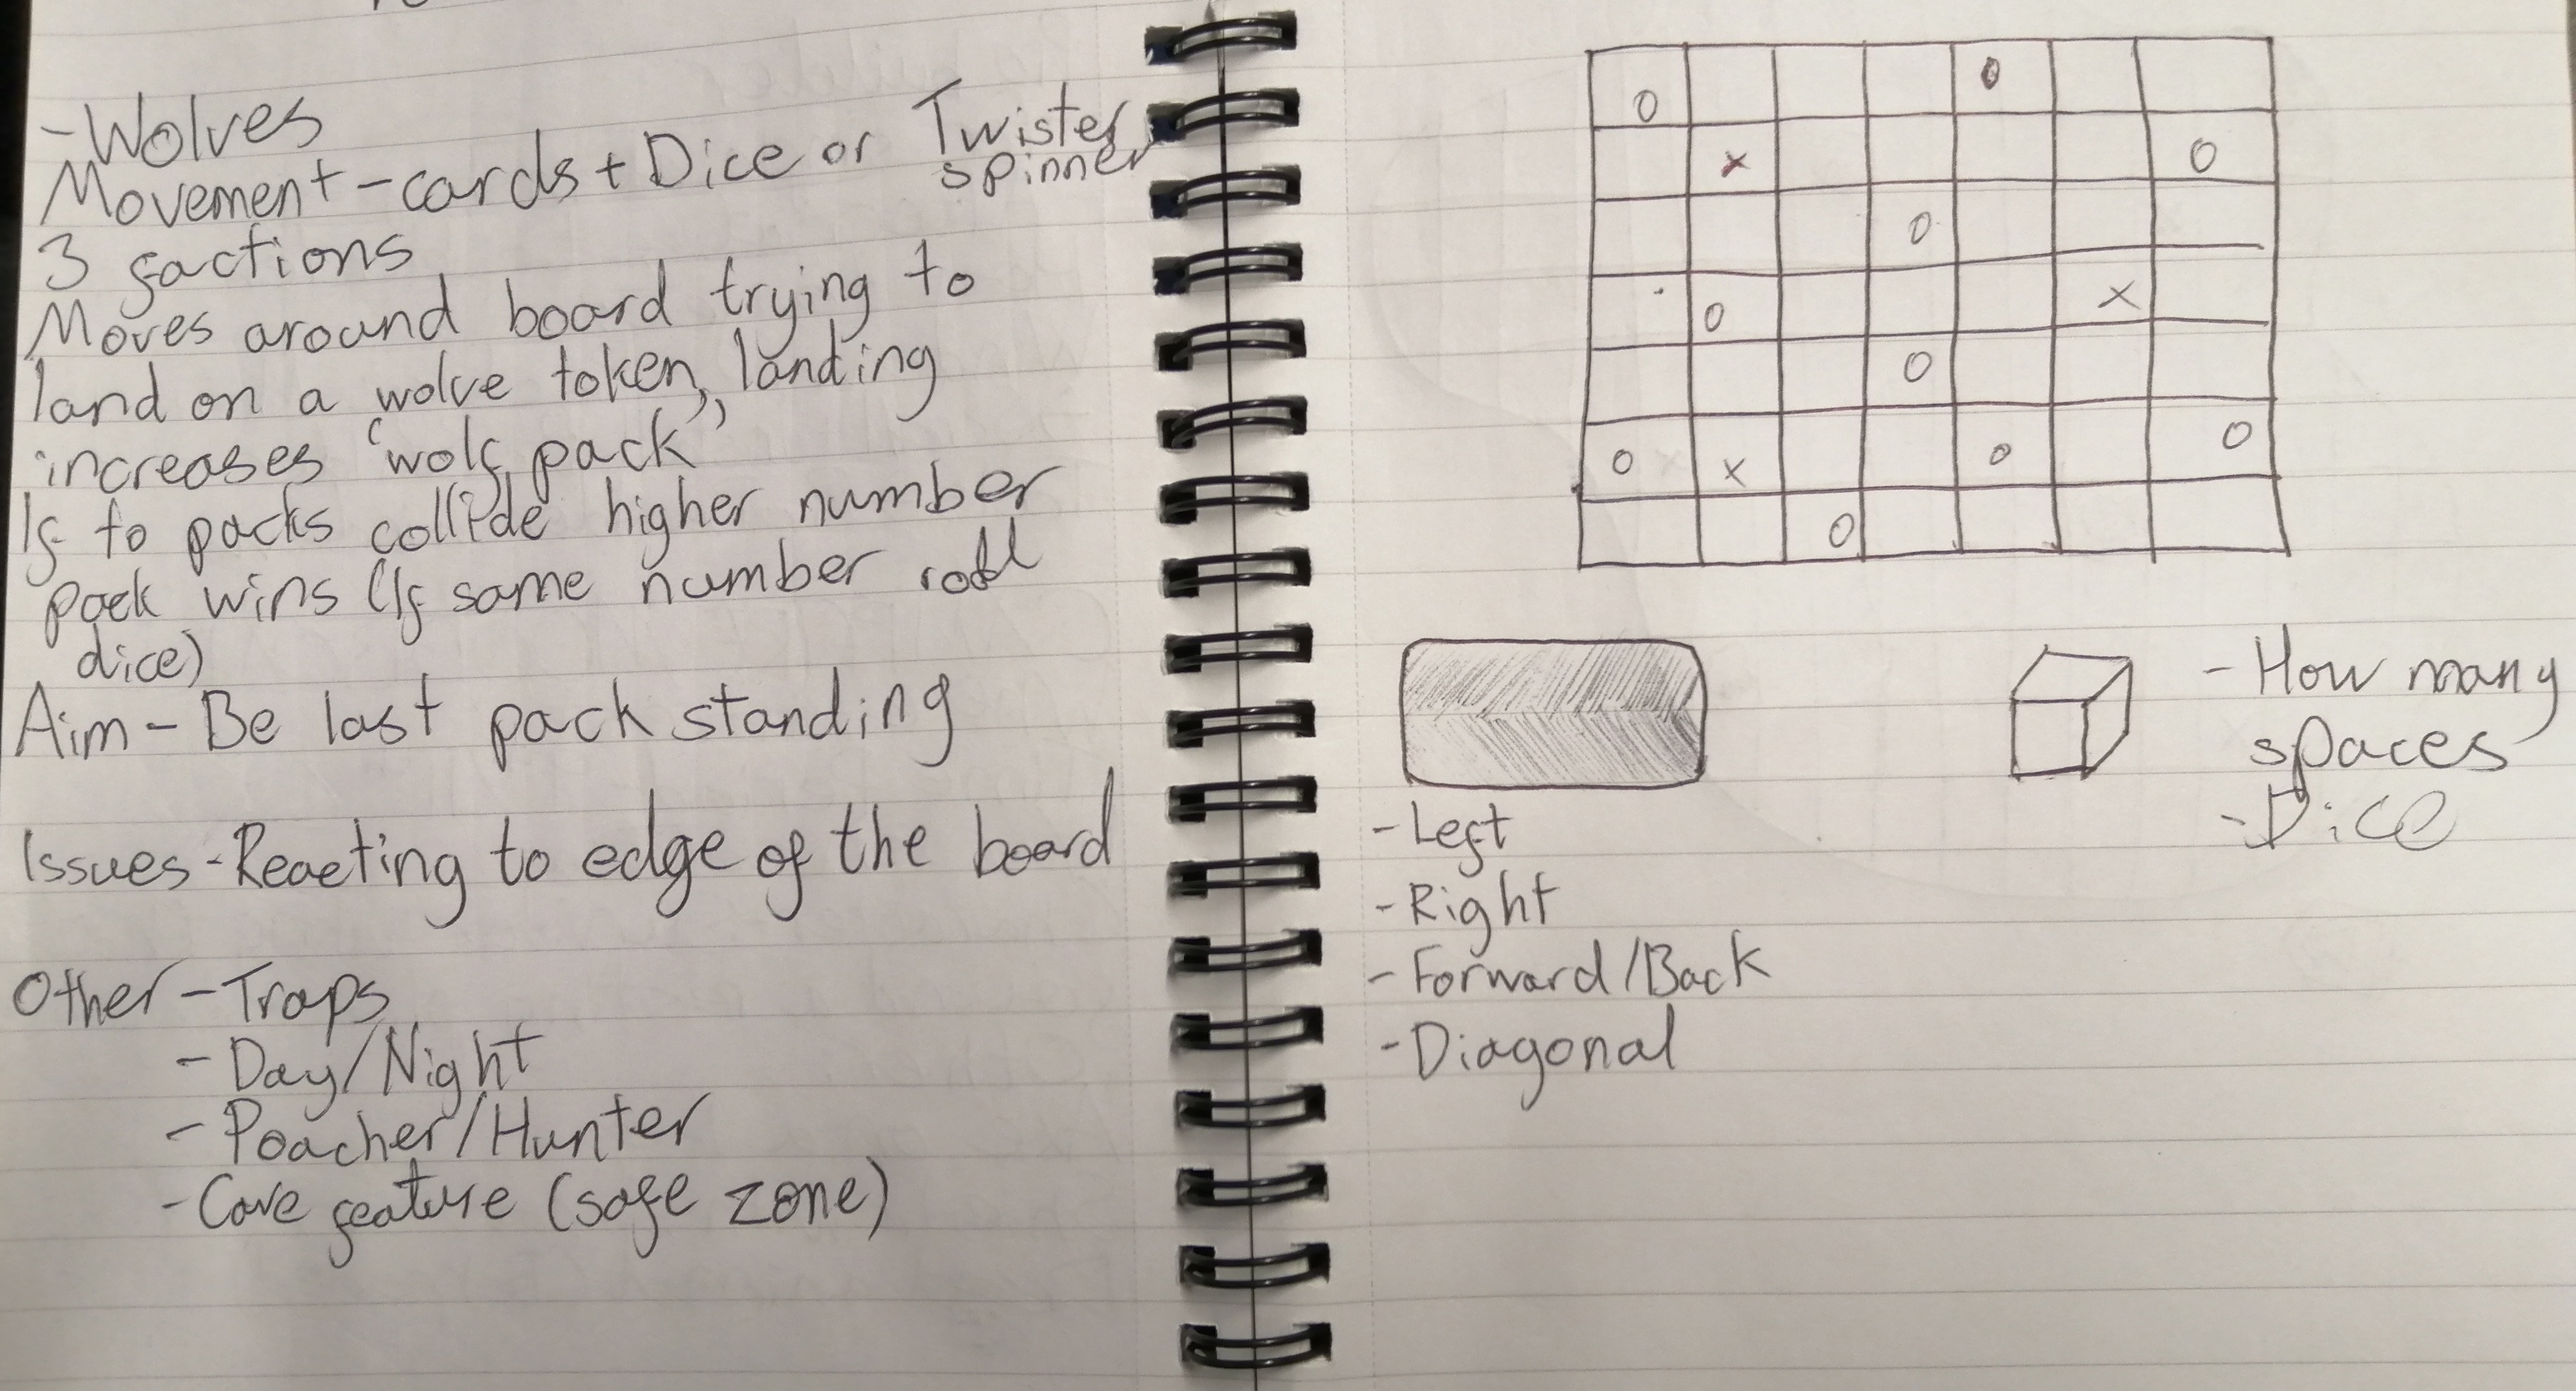 - Wolves
Movement - cards + Dice or Twister
spinner
3 factions
Moves around board trying to
land on a wolve token, landing
increases 'wolf pack'
If to packs collide higher number
pack wins (If same number roll
dice)
Aim - Be last pack standing
Issues - Reacting to edge of the board
Other - Traps
- Day/Night
- Poacher/Hunter
- Cave feature (safe zone)
O O
X O
O
O X
O
O X O O
O
- How many
spaces
- Dice
- Left
- Right
- Forward/Back
- Diagonal